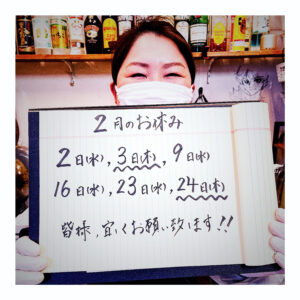 2月のお休み
2日(水), 3日(木), 9日(水)
16日(水), 23日(水), 24日(木)
皆様、宜しくお願い致します!!